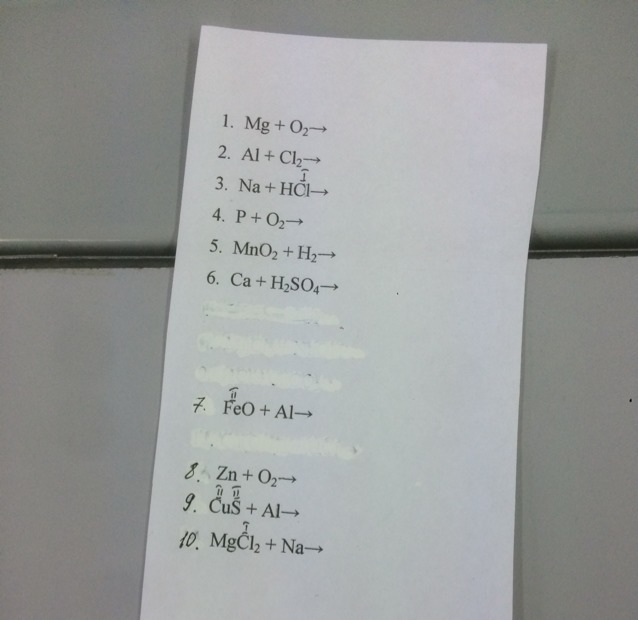 1. Mg + O₂→
2. Al + Cl₂→
I
3. Na + HCl→
4. P + O₂→
5. MnO₂ + H₂→
6. Ca + H₂SO₄→
II
7. FeO + Al→
8. Zn + O₂→
II II
9. CuS + Al→
I
10. MgCl₂ + Na→